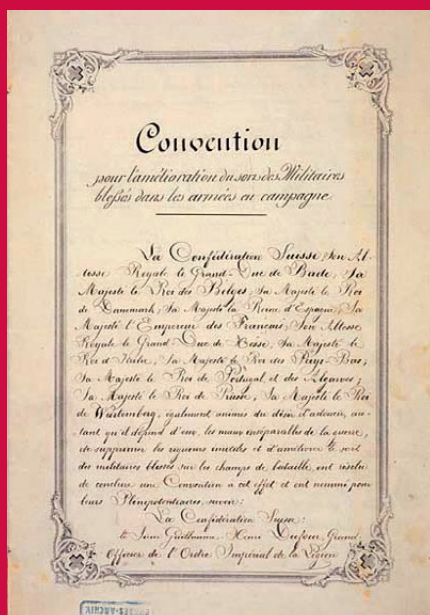 Convention
pour l'amélioration du sort des Militaires
blessés dans les armées en campagne.
La Confédération Suisse, Son Al-
tesse Royale le Grand-Duc de Bade, Sa
Majesté le Roi des Belges, Sa Majesté le Roi
de Danemark, Sa Majesté la Reine d'Espagne, Sa
Majesté l'Empereur des Français, Son Altesse
Royale le Grand-Duc de Hesse, Sa Majesté le
Roi d'Italie, Sa Majesté le Roi des Pays-Bas,
Sa Majesté le Roi de Portugal et des Algarves,
Sa Majesté le Roi de Prusse, Sa Majesté le Roi
de Würtemberg, également animés du désir d'adoucir, au-
tant qu'il dépend d'eux, les maux inséparables de la guerre,
de supprimer les rigueurs inutiles et d'améliorer le sort
des militaires blessés sur les champs de bataille, ont résolu
de conclure une Convention à cet effet et ont nommé pour
leurs Plénipotentiaires, savoir:
La Confédération Suisse:
le Sieur Guillaume-Henri Dufour, Grand
Officier de l'Ordre Impérial de la Légion